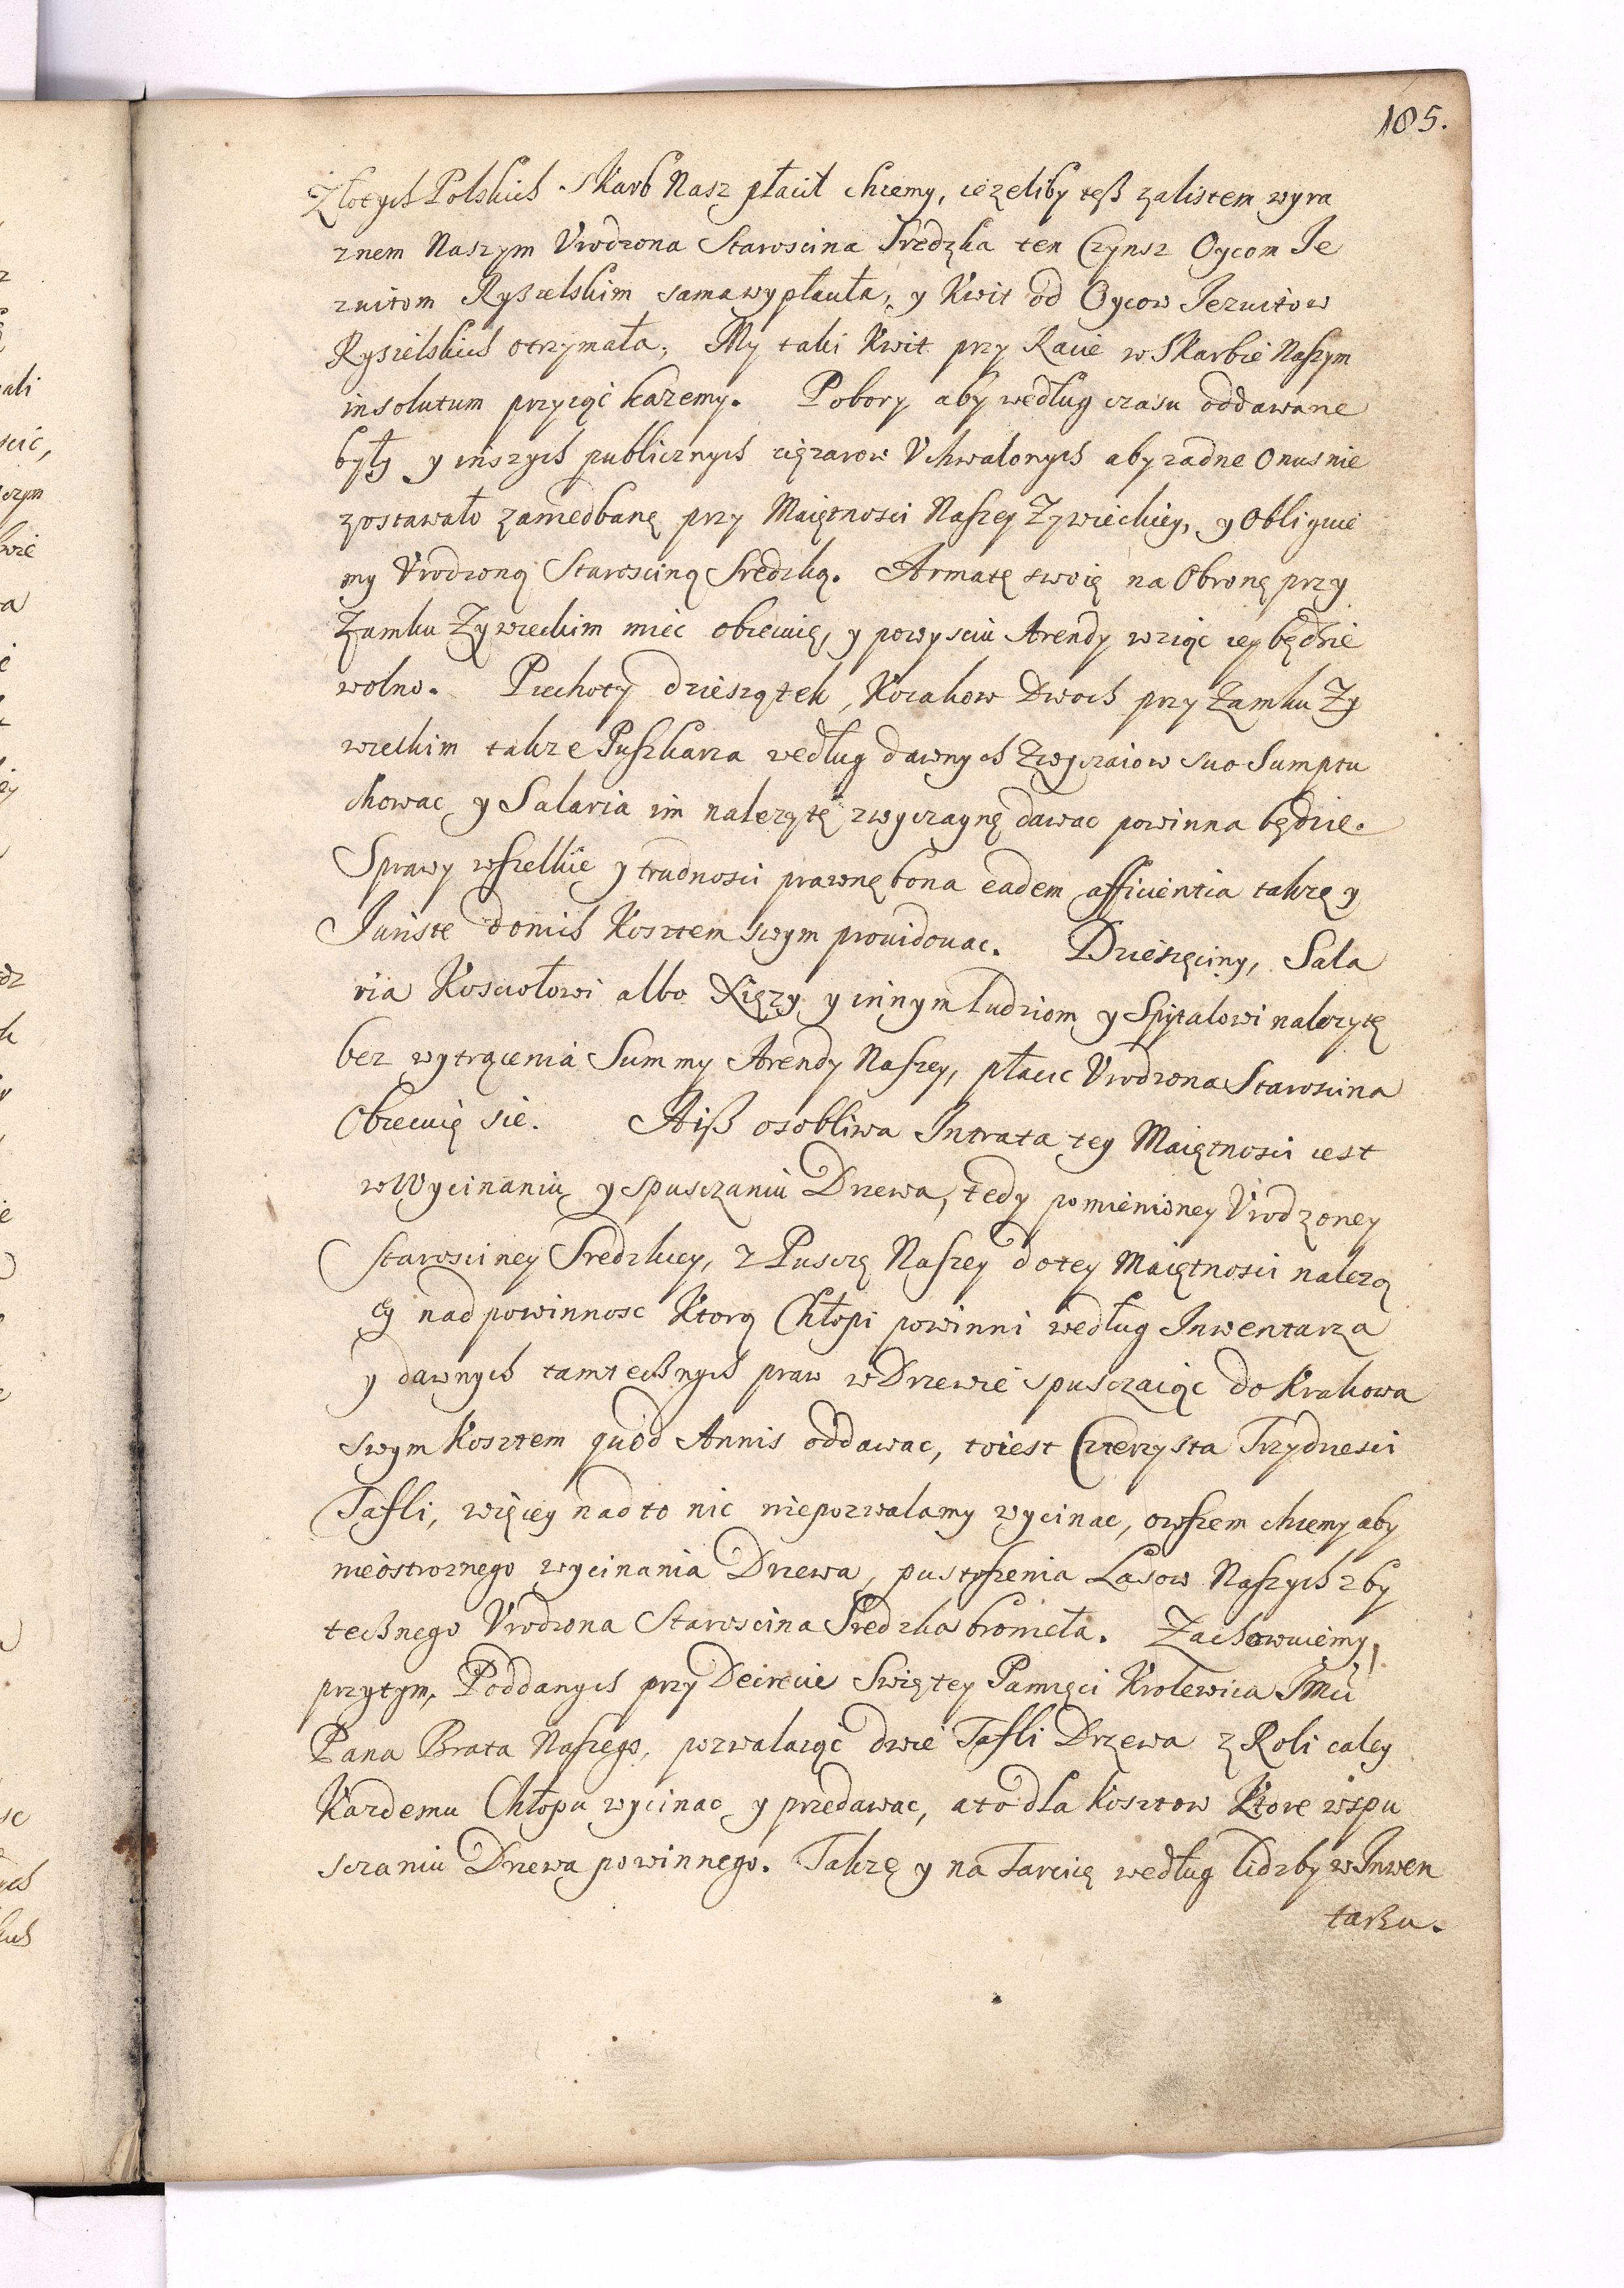 185.
Złotych Polskich Skarb Nasz płacił chcemy, ieżeliby teß zalistem wyra
znem Naszym Vrodzona Staroscina Sredzka ten Czynsz Oycom Ie
zuitom Ryszelskim samawypłaciła, y Kwit od Oycow Iezuitow
Ryszielskich otrzymała, My taki Kwit przy Racie w Skarbie Naszym
insolutum przyiąć każemy. Pobory aby według czasu oddawane
były y inszych publicznych ciężarow Vchwalonych aby żadne Onus nie
zostawało zaniedbane przy Maiętnosci Naszey Zywieckiey, y Obliguie
my Vrodzoną Starościną Sredzką. Armatę swoię na Obronę przy
Zamku Zywieckim miec obiecuię, y powysciu Arendy wziąc iey będzie
wolno. Piechoty dziesiątek, Kozakow Dwoch przy Zamku Zy
wieckim także Puszkarza według dawnych Zwyczaiow suo Sumptu
chowac y Salaria im należytę zwyczaynę dawac powinna będzie.
Sprawy wszelkie y trudnosci prawnę bona eadem afficientia takzę y
Iuriste domish Kosztem swym prouidouac. Dziesięciny, Sala
ria Kosciołowi albo Xięzy y innym ludziom y Spitalowi należytę
bez wytrącenia Summy Arendy Naszey, płacic Vrodzona Staroscina
Obiecuię sie. Aiß osobliwa Intrata tey Maiętnosci iest
wWycinaniu y spusczaniu Drzewa, tedy pomienioney Vrodzoney
Starosciney Sredzkiey, z Pusczę Naszey dotey Maiętnosci nalezą
cy nad powinnosc Ktorą Chłopi powinni według Inwentarza
y dawnych tamtechnych praw wDrzewie spusczaiąc do Krakowa
swym Kosztem quod Annis oddawac, toiest Czterzysta Trzydziesci
Tafli, więcey nadto nic niepozwalamy wycinac, owszem chcemy aby
nieostroznego wycinania Drzewa, pustoszenia Lasow Naszych zby
technego Vrodzona Staroscina Sredzka broniela. Zachowuiemy
przytym, Poddanych przy Decrecie Swiętey Pamięci Krolewica JMci
Pana Brata Naszego, pozwalaiąc dwie Tafli Drzewa z Roli caley
Kazdemu Chłopu wycinac y przedawac, a to dla Kosztow Ktore wspu
sczaniu Drzewa powinnego. Takzę y na Tarcicę według lidzby w Inwen
tarzu.